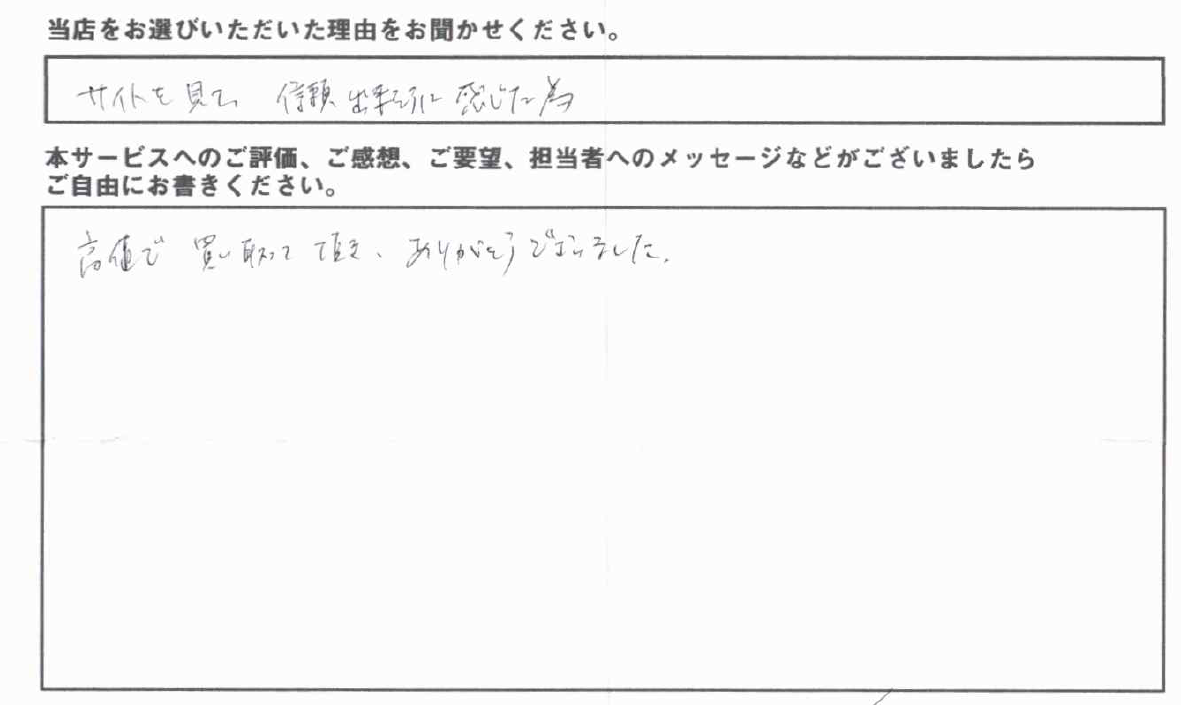 当店をお選びいただいた理由をお聞かせください。
サイトを見て、信頼出来そうに感じた為
本サービスへのご評価、ご感想、ご要望、担当者へのメッセージなどがございましたら
ご自由にお書きください。
高値で買い取って頂き、ありがとうございました。